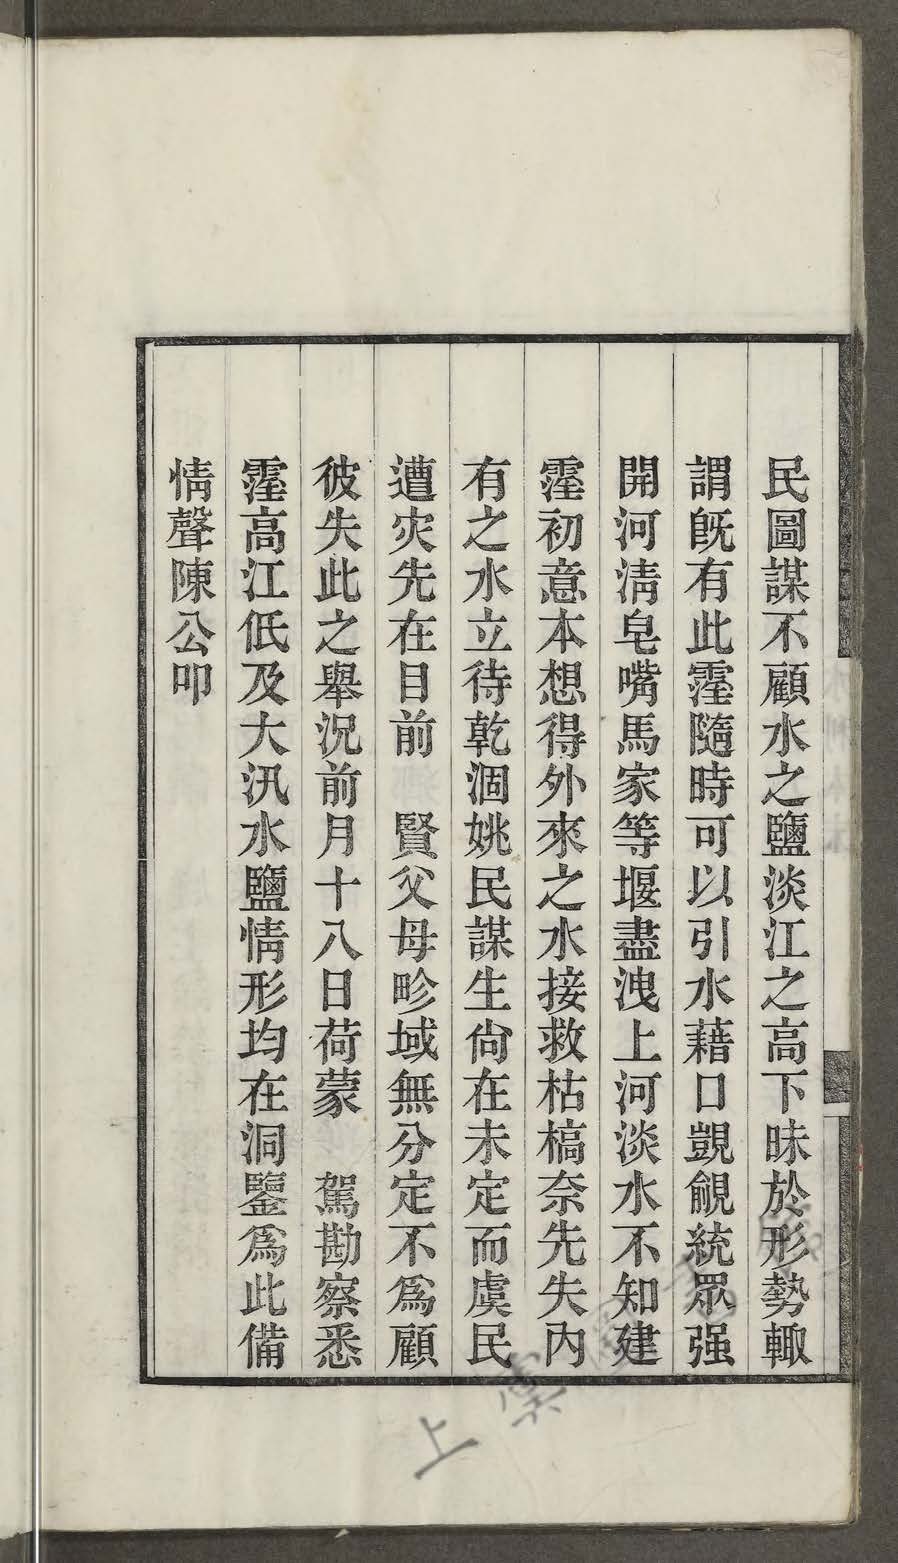 民圖謀不顧水之鹽淡江之高下昧於形勢輙
謂旣有此霪隨時可以引水藉口覬覦統眾强
開河淸皂嘴馬家等堰盡洩上河淡水不知建
霪初意本想得外來之水接救枯槁奈先失內
有之水立待乾涸姚民謀生尙在未定而虞民
遭灾先在目前　賢父母畛域無分定不爲顧
彼失此之舉況前月十八日荷蒙　駕勘察悉
霪高江低及大汛水鹽情形均在洞鑒爲此備
情聲陳公叩
上虞